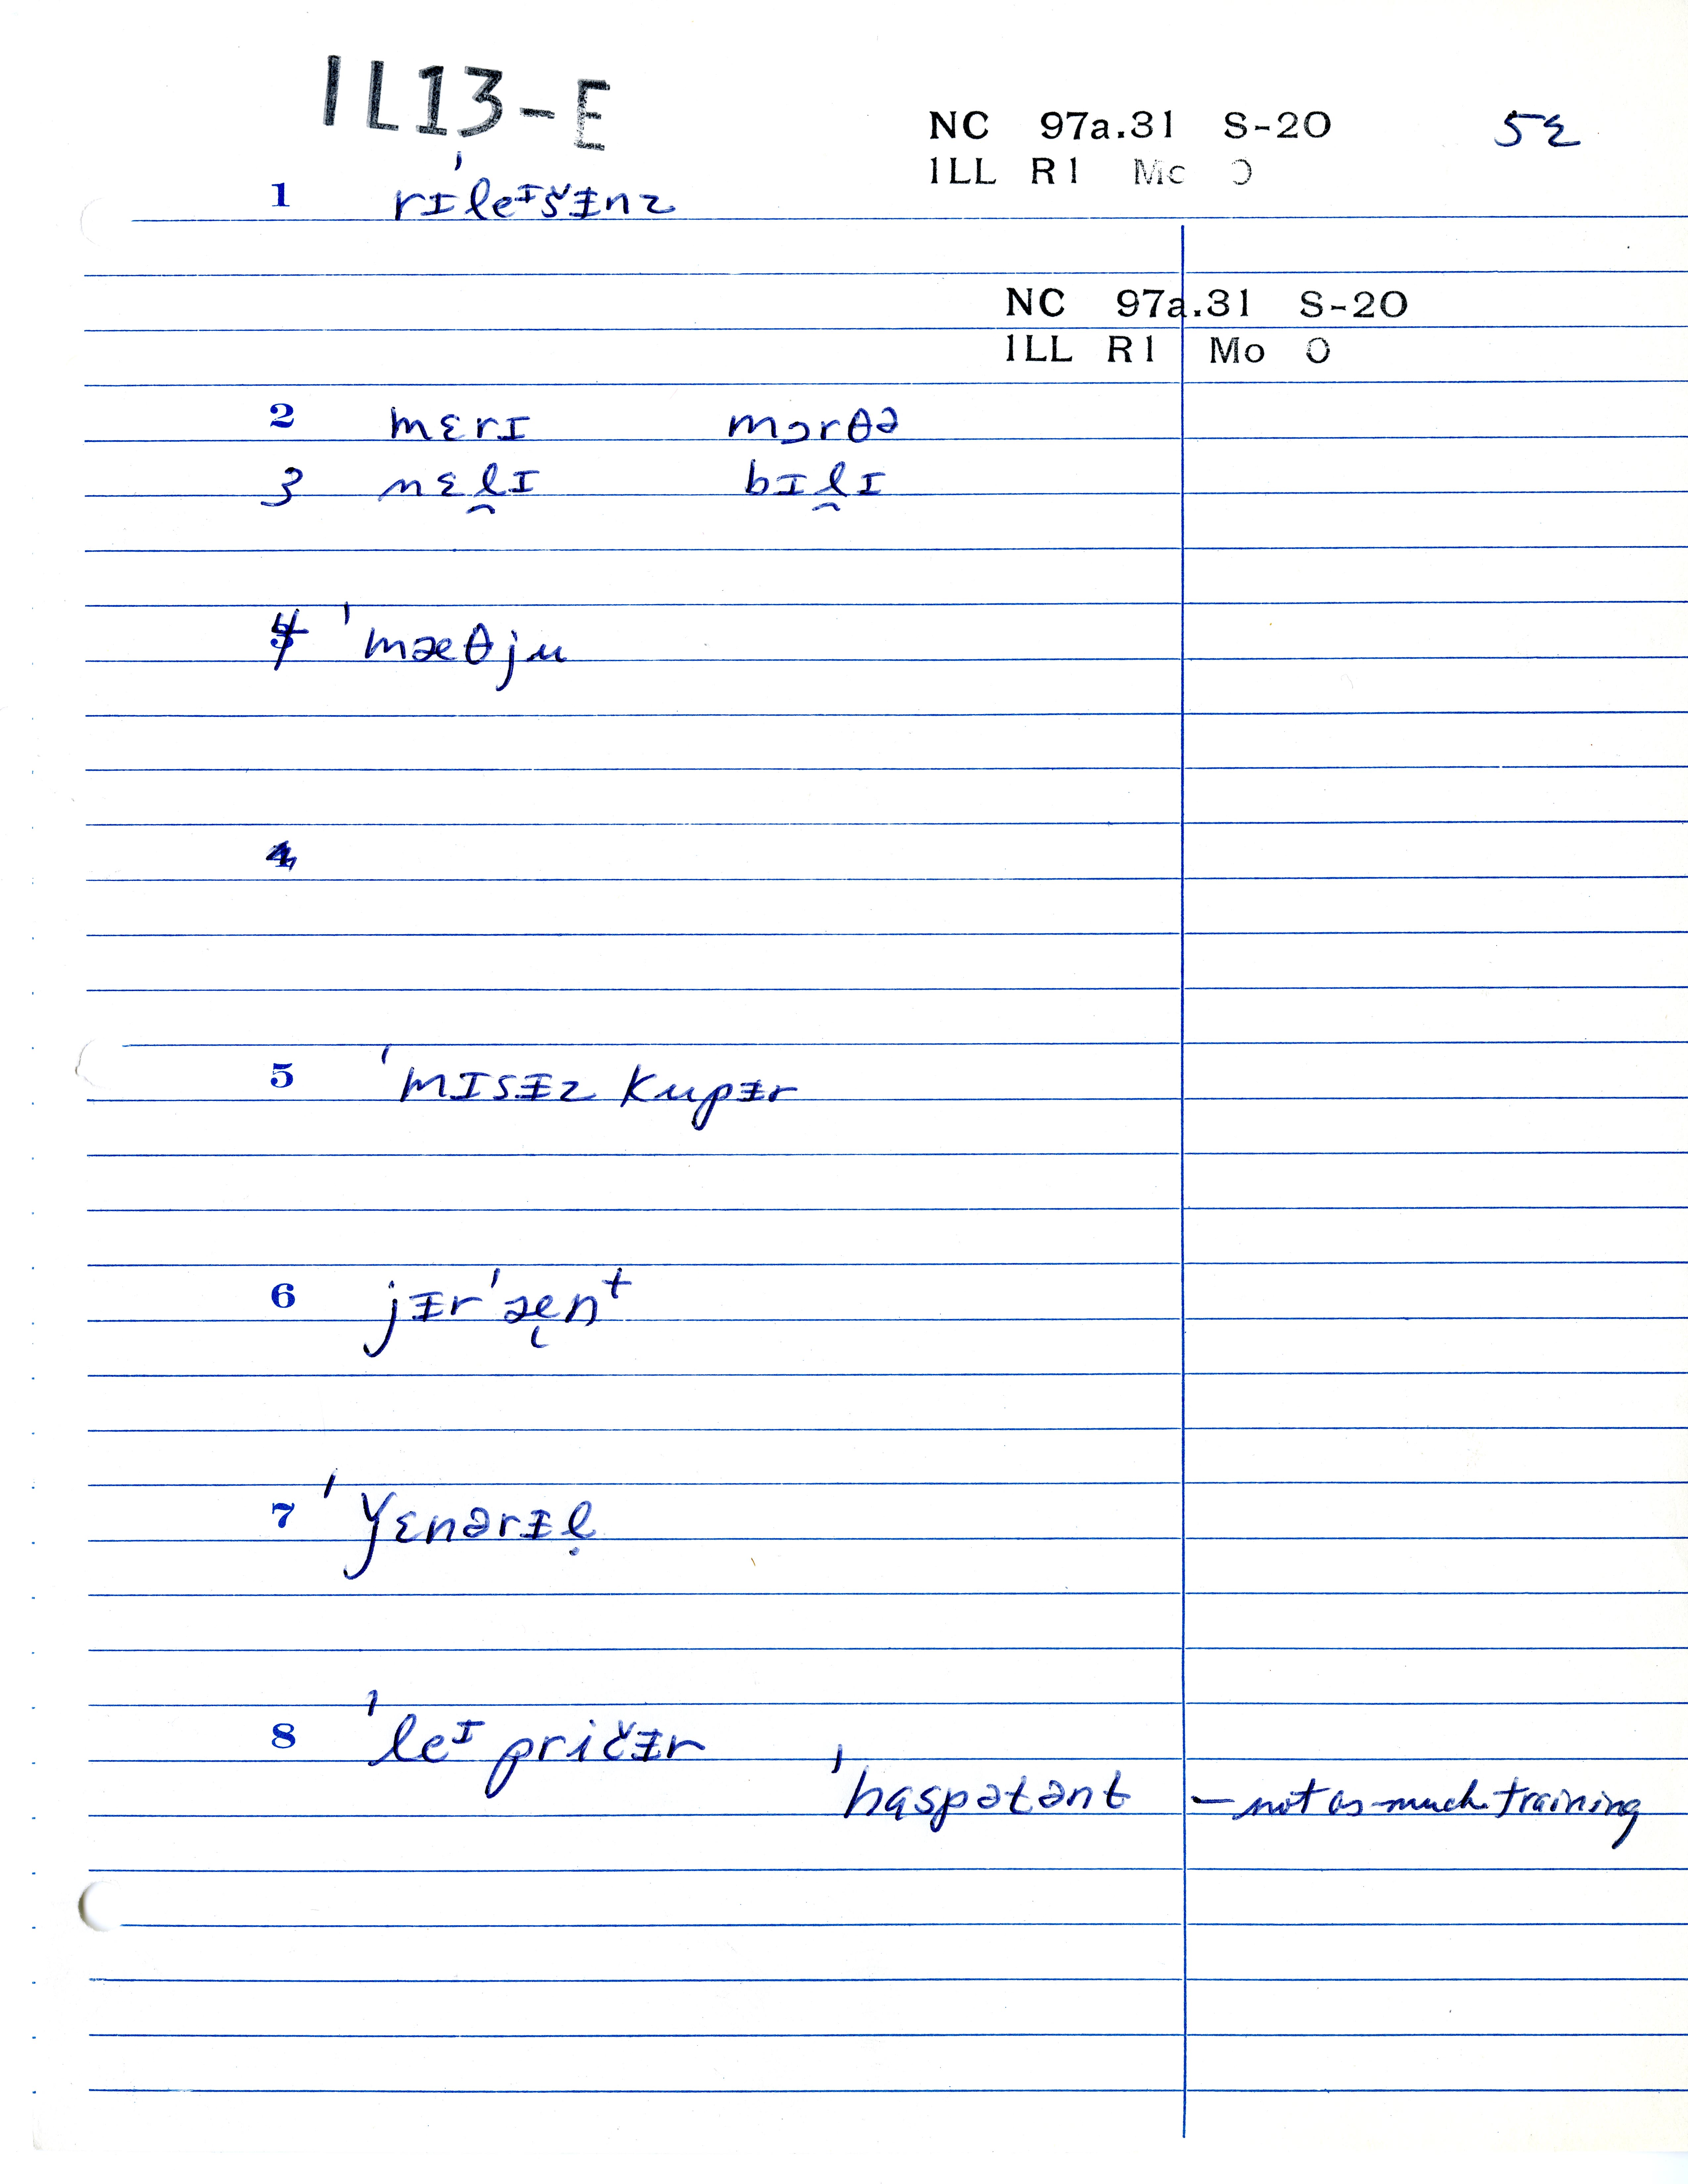 IL13-E
NC 97a.31 S-20 52
ILL R1 Mo O
1 rɪˈleᴵšᵻnz
NC 97a.31 S-20
ILL R1 Mo O
2 mɛrɪ mɔrθə
3 nɛl̯ɪ bɪl̯ɪ
4 ˈmæθju
5 ˈmɪsᵻz kupᵻr
6 jᵻrˈæ̨nᵗ
7 ˈɣɛnərᵻḷ
8 ˈleᴵ pričᵻr
ˈhaspətənt – not as much training